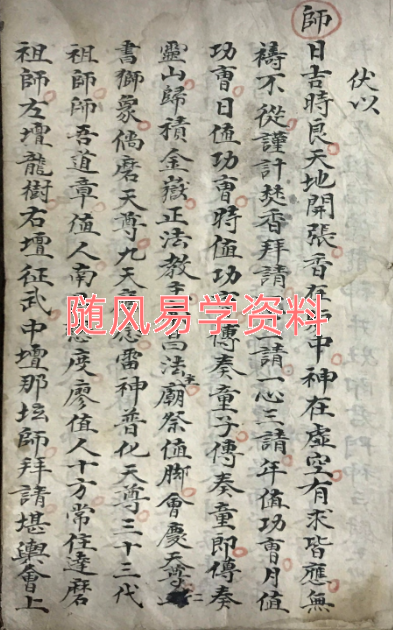 伏以
師日吉時良天地開張香在爐中神在虛空有求皆應無
禱不從謹計焚香拜請一請一心三請年值功曹月值
功曹日值功曹時值功曹傳奏童子傳奏童即傳奏
靈山歸積金嶽正法教主 法主廟祭值脚會慶天尊
書獅象儒磨天尊九天應 雷神普化天尊三十三代
祖師師吾道章值人南 慈度廖值人十方常住達磨
祖師左壇龍樹右壇征武中壇那坛師拜請堪輿會上
随风易学资料